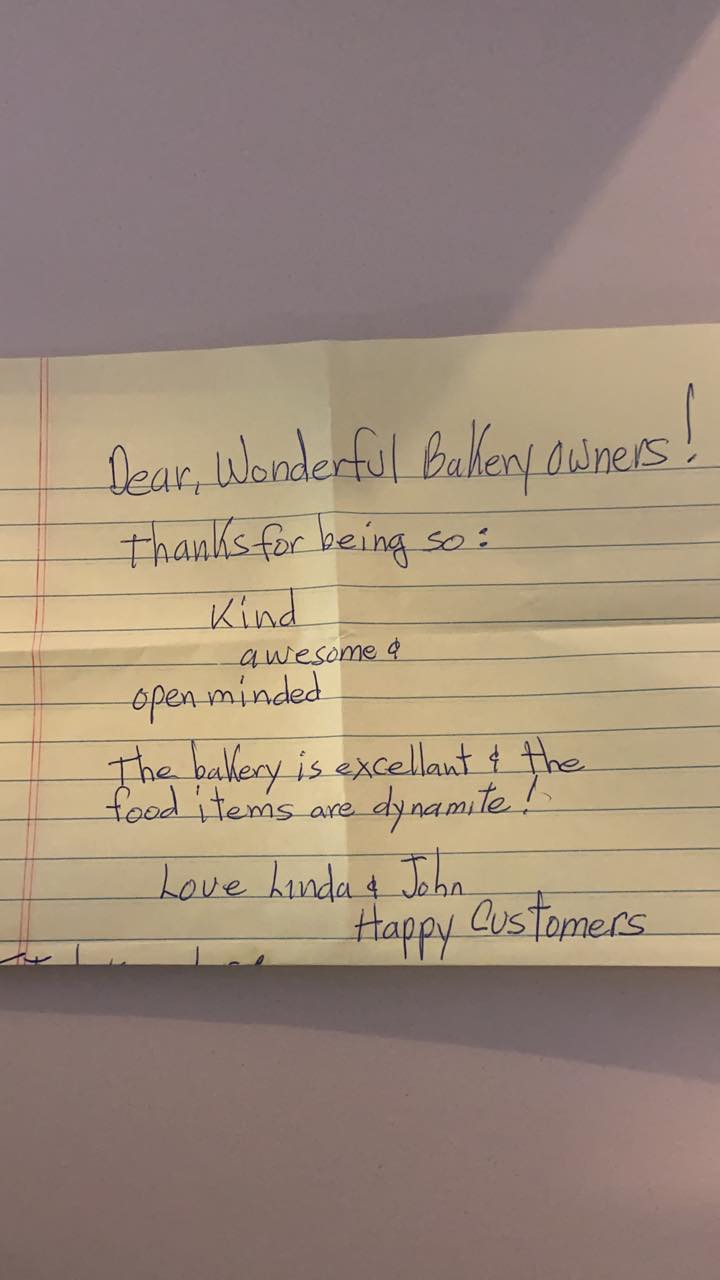 Dear, Wonderful Bakery owners!
thanks for being so:
Kind
awesome &
open minded
The bakery is excellant & the
food items are dynamite!
Love Linda & John
Happy Customers